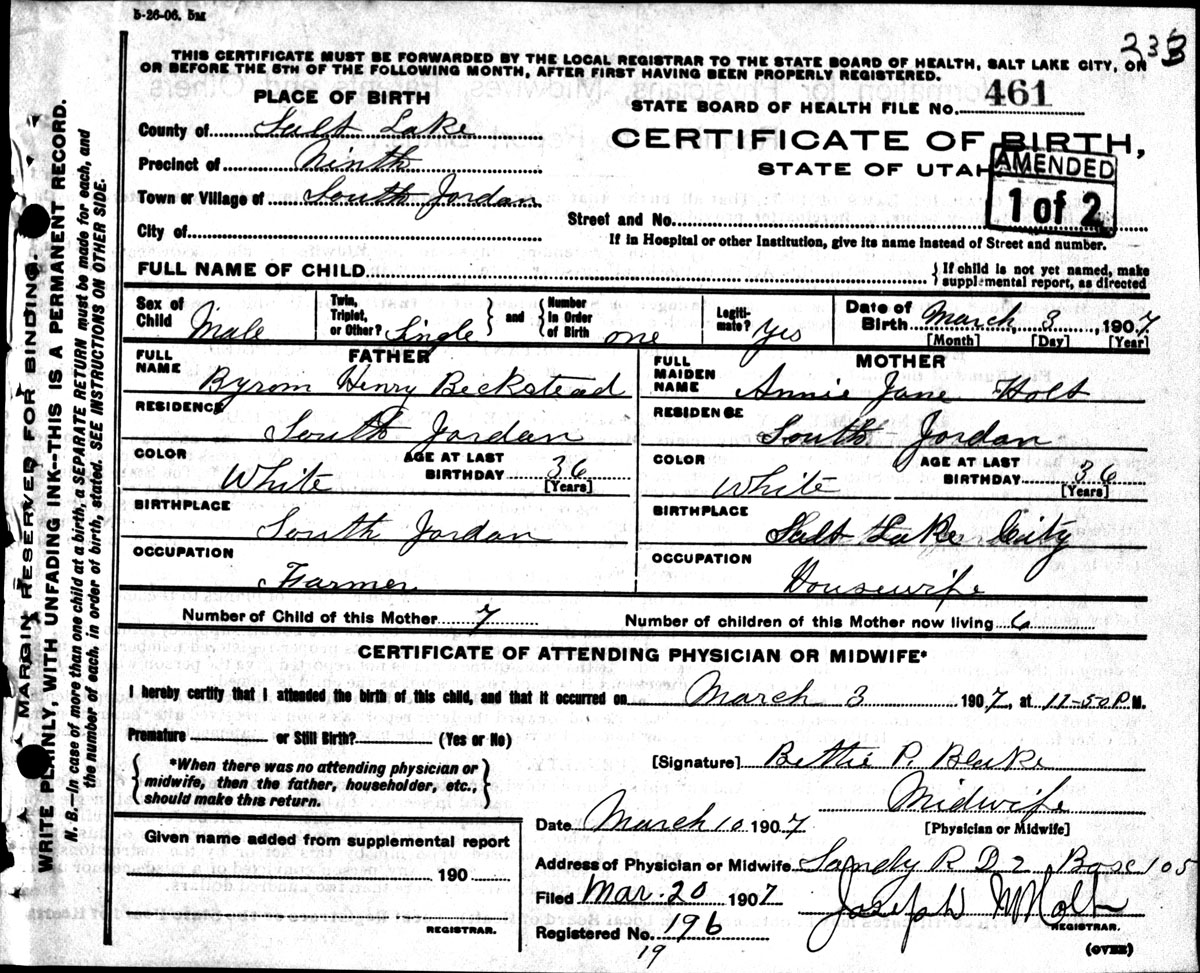 5-26-06. 5M
233
THIS CERTIFICATE MUST BE FORWARDED BY THE LOCAL REGISTRAR TO THE STATE BOARD OF HEALTH, SALT LAKE CITY, ON
OR BEFORE THE 5TH OF THE FOLLOWING MONTH, AFTER FIRST HAVING BEEN PROPERLY REGISTERED.
PLACE OF BIRTH
STATE BOARD OF HEALTH FILE NO. 461
County of Salt Lake
CERTIFICATE OF BIRTH,
Precinct of Ninth
STATE OF UTAH
AMENDED
1 of 2
Town or Village of South Jordan
Street and No.
City of
If in Hospital or other Institution, give its name instead of Street and number.
FULL NAME OF CHILD
{ If child is not yet named, make
supplemental report, as directed
Sex of Child Male
Twin, Triplet, or Other? Single } and { Number in Order of Birth one
Legiti-mate? Yes
Date of Birth March 3, 1907
[Month] [Day] [Year]
FATHER
MOTHER
FULL NAME Byrom Henry Beckstead
FULL MAIDEN NAME Annie Jane Holt
RESIDENCE South Jordan
RESIDENCE South Jordan
COLOR White AGE AT LAST BIRTHDAY 36 [Years]
COLOR White AGE AT LAST BIRTHDAY 36 [Years]
BIRTHPLACE South Jordan
BIRTHPLACE Salt Lake City
OCCUPATION Farmer
OCCUPATION Housewife
Number of Child of this Mother 7
Number of children of this Mother now living 6
CERTIFICATE OF ATTENDING PHYSICIAN OR MIDWIFE*
I hereby certify that I attended the birth of this child, and that it occurred on March 3 1907, at 11-50 P.M.
Premature or Still Birth? (Yes or No)
{ *When there was no attending physician or
midwife, then the father, householder, etc.,
should make this return. }
[Signature] Bettie P. Blake
Midwife
[Physician or Midwife]
Date March 10 1907
Given name added from supplemental report
190
REGISTRAR.
Address of Physician or Midwife Sandy R D 2 Box 105
Filed Mar. 20 1907
Joseph M Holt
REGISTRAR.
Registered No. 196
19
(OVER)
MARGIN RESERVED FOR BINDING.
WRITE PLAINLY, WITH UNFADING INK--THIS IS A PERMANENT RECORD.
N. B.—In case of more than one child at a birth, a SEPARATE RETURN must be made for each, and
the number of each, in order of birth, stated. SEE INSTRUCTIONS ON OTHER SIDE.